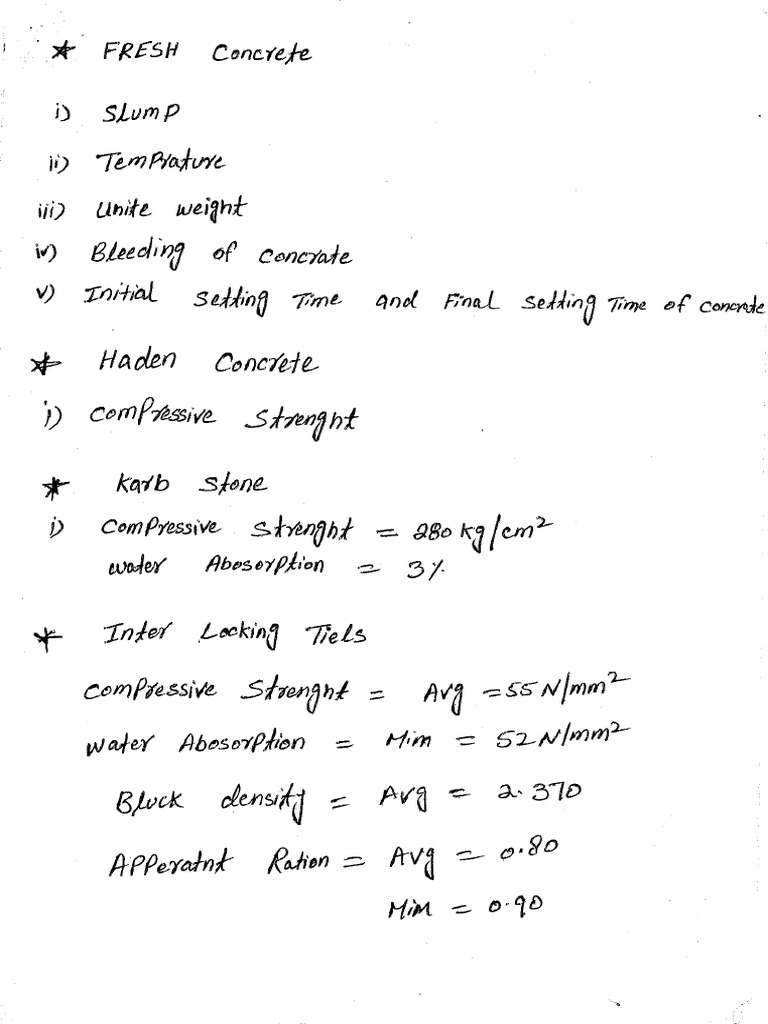 * FRESH Concrete
i) Slump
ii) Temprature
iii) unite weight
iv) Bleeding of concrate
v) Initial setting Time and Final setting Time of concrete
* Haden Concrete
i) compressive Strenght
* Karb Stone
i) compressive Strenght = 280 kg/cm²
water Abosorption = 3%
* Inter Locking Tiels
compressive Strenght = Avg = 55 N/mm²
water Abosorption = Mim = 52 N/mm²
Block density = Avg = 2.370
APPeratnt Ration = Avg = 0.80
Mim = 0.90